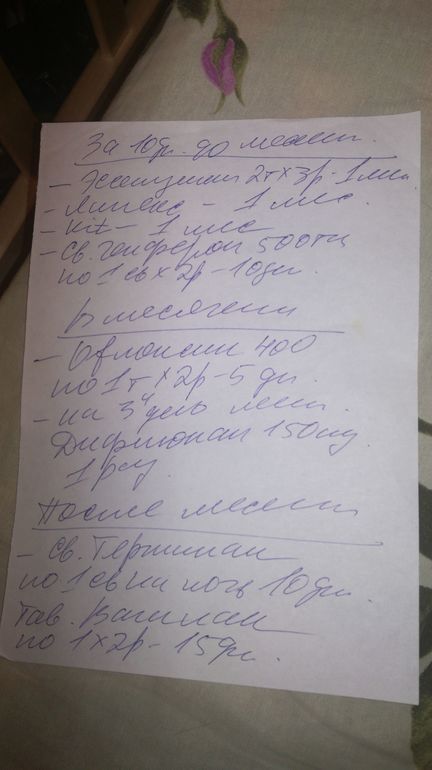 За 10 дн. до месяч.
- Эссенциали 2т х 3р - 1 мес.
- Линекс - 1 мес.
- Vit - 1 мес
- Св. генферон 500 тыс
по 1 св х 2р - 10 дн.
В месячени
- Офлоксин 400
по 1т х 2р - 5 дн.
- на 3й день меся.
Дифлюкан 150 мг.
1 р су
После месячн
- Св. Тержинан
по 1 св на ночь 10 дн.
Таб. Вагилак
по 1 х 2р - 15 дн.